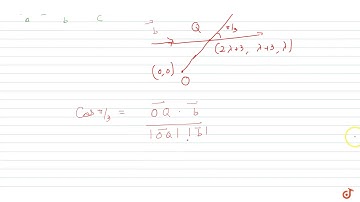 a b c b⃗ Q π/3
(2λ+3, λ+3, λ)
(0,0)
O
Cos π/3 = OQ⃗ · b⃗
|OQ⃗| |b⃗|